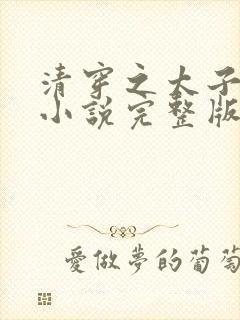 清穿之太子
小說完整版
愛做夢的葡萄